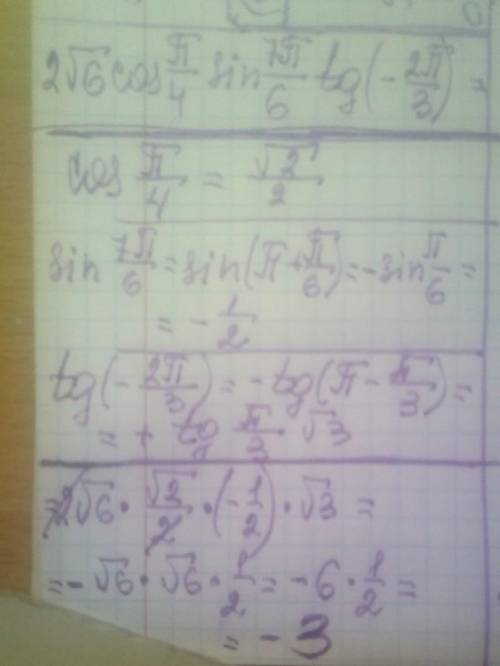 2√6 cos π/4 sin 7π/6 tg(-2π/3) =
cos π/4 = √2/2
sin 7π/6 = sin(π + π/6) = -sin π/6 =
= -1/2
tg(-2π/3) = -tg(π - π/3) =
= + tg π/3 · √3
= 2√6 · √2/2 · (-1/2) · √3 =
= -√6 · √6 · 1/2 = -6 · 1/2 =
= -3